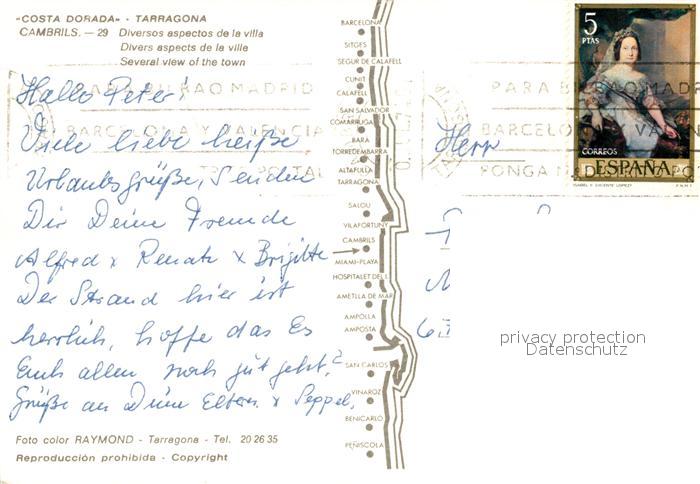 «COSTA DORADA» - TARRAGONA
CAMBRILS. — 29 Diversos aspectos de la villa
Divers aspects de la ville
Several view of the town
Hallo Peter!
Viele liebe heiße
Urlaubsgrüße, Senden
Dir Deine Freunde
Alfred x Renate x Brigitte
Der Strand hier ist
herrlich, hoffe das Es
Euch allen noch gut geht?
Grüße an Deine Eltern x Seppel.
Foto color RAYMOND - Tarragona - Tel. 20 26 35
Reproducción prohibida - Copyright
BARCELONA
SITGES
SEGUR DE CALAFELL
CUNIT
CALAFELL
SAN SALVADOR
COMARRUGA
BARA
TORREDEMBARRA
ALTAFULLA
TARRAGONA
SALOU
VILAFORTUNY
CAMBRILS
MIAMI-PLAYA
HOSPITALET DEL I.
AMETLLA DE MAR
AMPOLLA
AMPOSTA
SAN CARLOS
VINAROZ
BENICARLO
PEÑISCOLA
PARA BILBAO MADRID
BARCELONA Y VALENCIA
PARA BILBAO MADR
BARCELONA Y VA
PONGA
5
PTAS
CORREOS
ESPAÑA
ISABEL II VICENTE LOPEZ
F.N.M.T.
Herr
privacy protection
Datenschutz